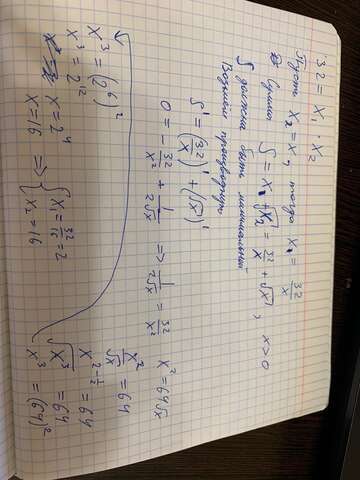 32 = x₁ · x₂
Пусть x₂ = x, тогда x₁ = 32/x
Сумма S = x₁ + √x₂ = 32/x + √x, x>0
S должна быть минимальной
Возьмём производную
S' = (32/x)' + (√x)'
0 = - 32/x² + 1/2√x => 1/2√x = 32/x²
x² = 64√x
x²/√x = 64
x^(2-1/2) = 64
√x³ = 64
x³ = (64)²
x³ = (2⁶)²
x³ = 2¹²
x = 2⁴
x = 16 => { x₁ = 32/16 = 2
x₂ = 16